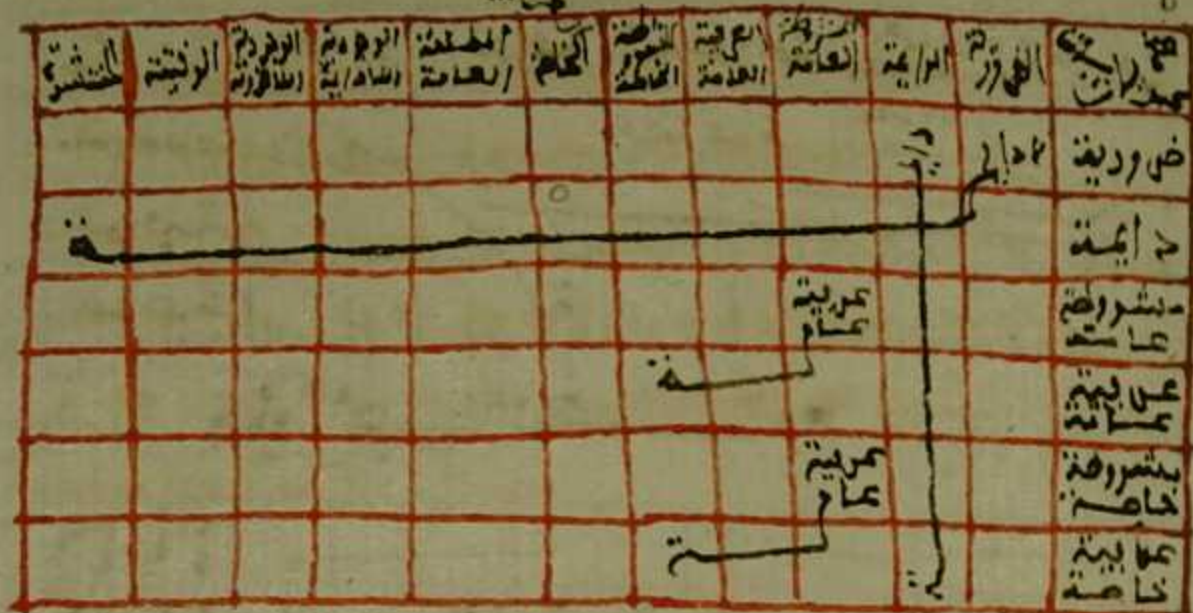 الضرورية الدايمة المشروطة العامة العرفية العامة المشروطة الخاصة الخاصة المطلقة العامة الوجودية اللادايمة الوجودية اللاضرورية الوقتية المنتشرة
ضرورية
دايمة
دايمة
مشروطة عامة عرفية عامة
عرفية عامة
مشروطة خاصة عرفية عامة
عرفية خاصة